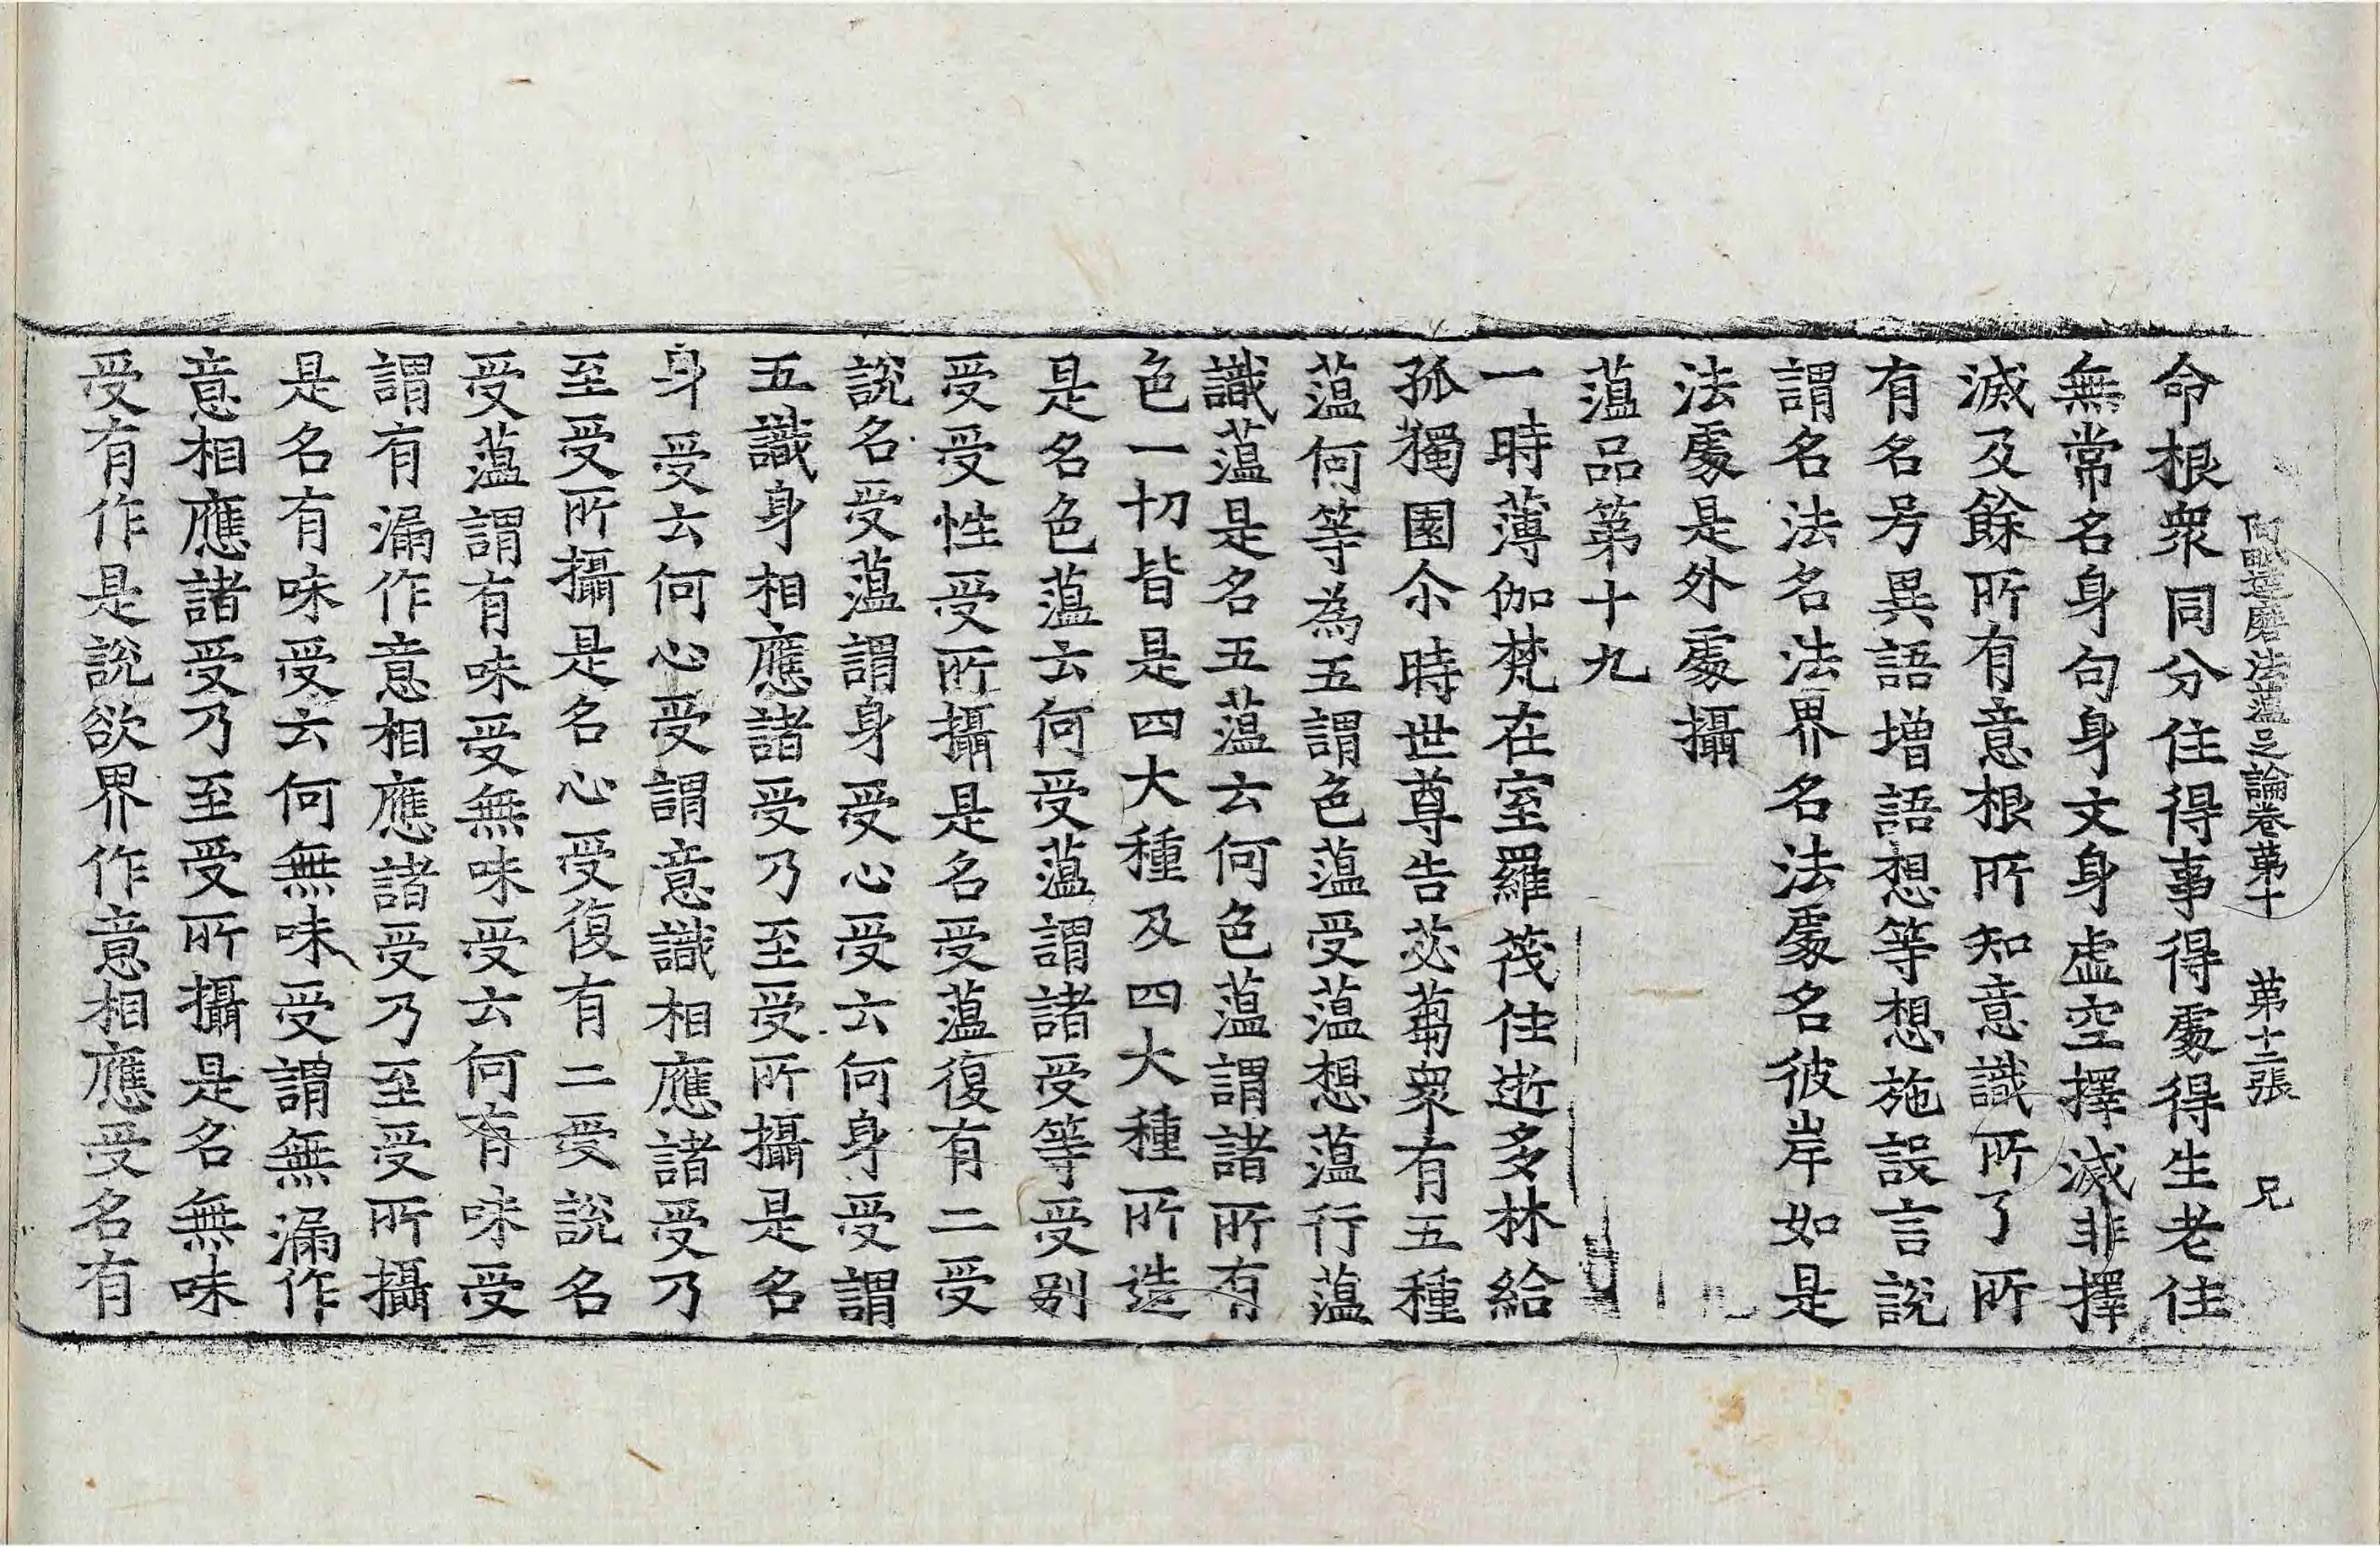 阿毗達磨法蘊足論卷第十 第十二張 兄
命根衆同分住得事得處得生老住
無常名身句身文身虛空擇滅非擇
滅及餘所有意根所知意識所了所
有名号異語增語想等想施設言說
謂名法名法界名法處名彼岸如是
法處是外處攝
蘊品第十九
一時薄伽梵在室羅筏住逝多林給
孤獨園尒時世尊告苾蒭衆有五種
蘊何等為五謂色蘊受蘊想蘊行蘊
識蘊是名五蘊云何色蘊謂諸所有
色一切皆是四大種及四大種所造
是名色蘊云何受蘊謂諸受等受别
受受性受所攝是名受蘊復有二受
說名受蘊謂身受心受云何身受謂
五識身相應諸受乃至受所攝是名
身受云何心受謂意識相應諸受乃
至受所攝是名心受復有二受說名
受蘊謂有味受無味受云何有味受
謂有漏作意相應諸受乃至受所攝
是名有味受云何無味受謂無漏作
意相應諸受乃至受所攝是名無味
受有作是說欲界作意相應受名有